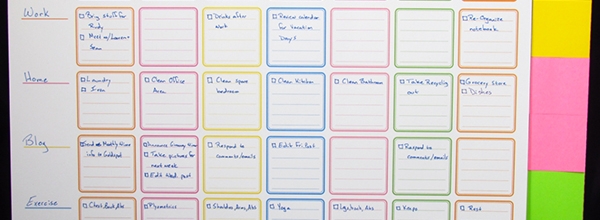 Work
Brig stuff for
Rudy
Meet w/
Team
Drinks after
work
Renew calendar
for Vacation
Days!
Re-Organize
notebook
Home
Laundry
Iron
Clean Office
Area
Clean spare
bedroom
Clean Kitchen
Clean Bathroom
Take Recycling
out
Grocery Store
Dishes
Blog
Send Monthly
info to
Take pictures for
next week
Edit Wed. post
Respond to
comments/emails
Edit Fri. Post
Respond to
comments/emails
Exercise
Chest, Back, Abs
Plyometrics
Shoulders, Arms, Abs
Yoga
Legs, back, Abs
Kenpo
Rest